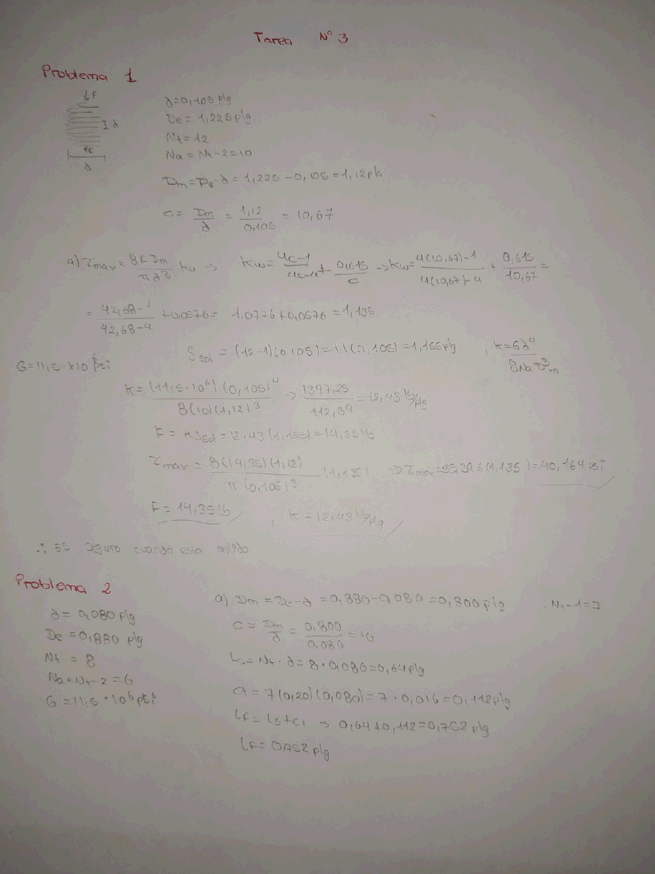 Tarea N° 3
Problema 1
↓F
d
d=0,105 plg
De = 1,225 plg
Nt = 12
Na = Nt-2=10
Dm = De-d = 1,225 - 0,105 = 1,12 plg
c = Dm/d = 1,12/0,105 = 10,67
a) τmax = 8FDm/πd³ kw → Kw = 4c-1/4c-4 + 0,615/c → Kw = 4(10,67)-1/4(10,67)-4 + 0,615/10,67 =
= 42,68-1/42,68-4 + 0,0576 = 1,0776+0,0576 = 1,135
G=11,5 *10⁶ psi
Ssol = (12-1)(0,105) = 11(0,105) = 1,155 plg ; k = Gd⁴/8Na D³m
K = (11,5·10⁶)(0,105)⁴/8(10)(1,12)³ → 1397,25/112,39 = 12,43 lb/plg
F = k Ssol = 12,43(1,155) = 14,35 lb
τmax = 8(14,35)(1,12)/π(0,105)³ (1,135) → τmax = (1,135) = 40,164 psi
F = 14,35 lb ; K = 12,43 lb/plg
∴ Es seguro cuando esta
Problema 2
d = 0,080 plg
De = 0,880 plg
Nt = 8
Na = Nt-2 = 6
G = 11,5 · 10⁶ psi
a) Dm = De-d = 0,880-0,080 = 0,800 plg , Nt-1=7
c = Dm/d = 0,800/0,080 = 10
Ls = Nt · d = 8 · 0,080 = 0,64 plg
a = 7(0,20)(0,080) = 7 · 0,016 = 0,112 plg
LF = Ls+a → 0,64+0,112 = 0,752 plg
LF = 0,752 plg